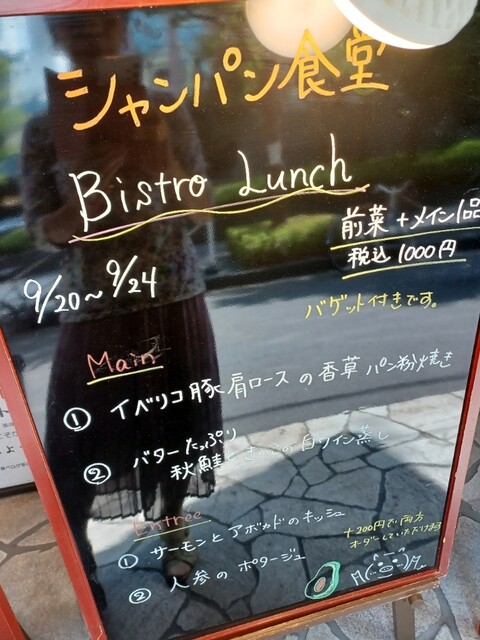 シャンパン食堂
Bistro Lunch
前菜+メイン1品
税込1000円
9/20~9/24
バゲット付きです。
Main
① イベリコ豚肩ロースの香草パン粉焼き
② バターたっぷり
秋鮭ときのこの白ワイン蒸し
Entree
① サーモンとアボカドのキッシュ
② 人参のポタージュ
+200円で両方
オーダーしていただけます